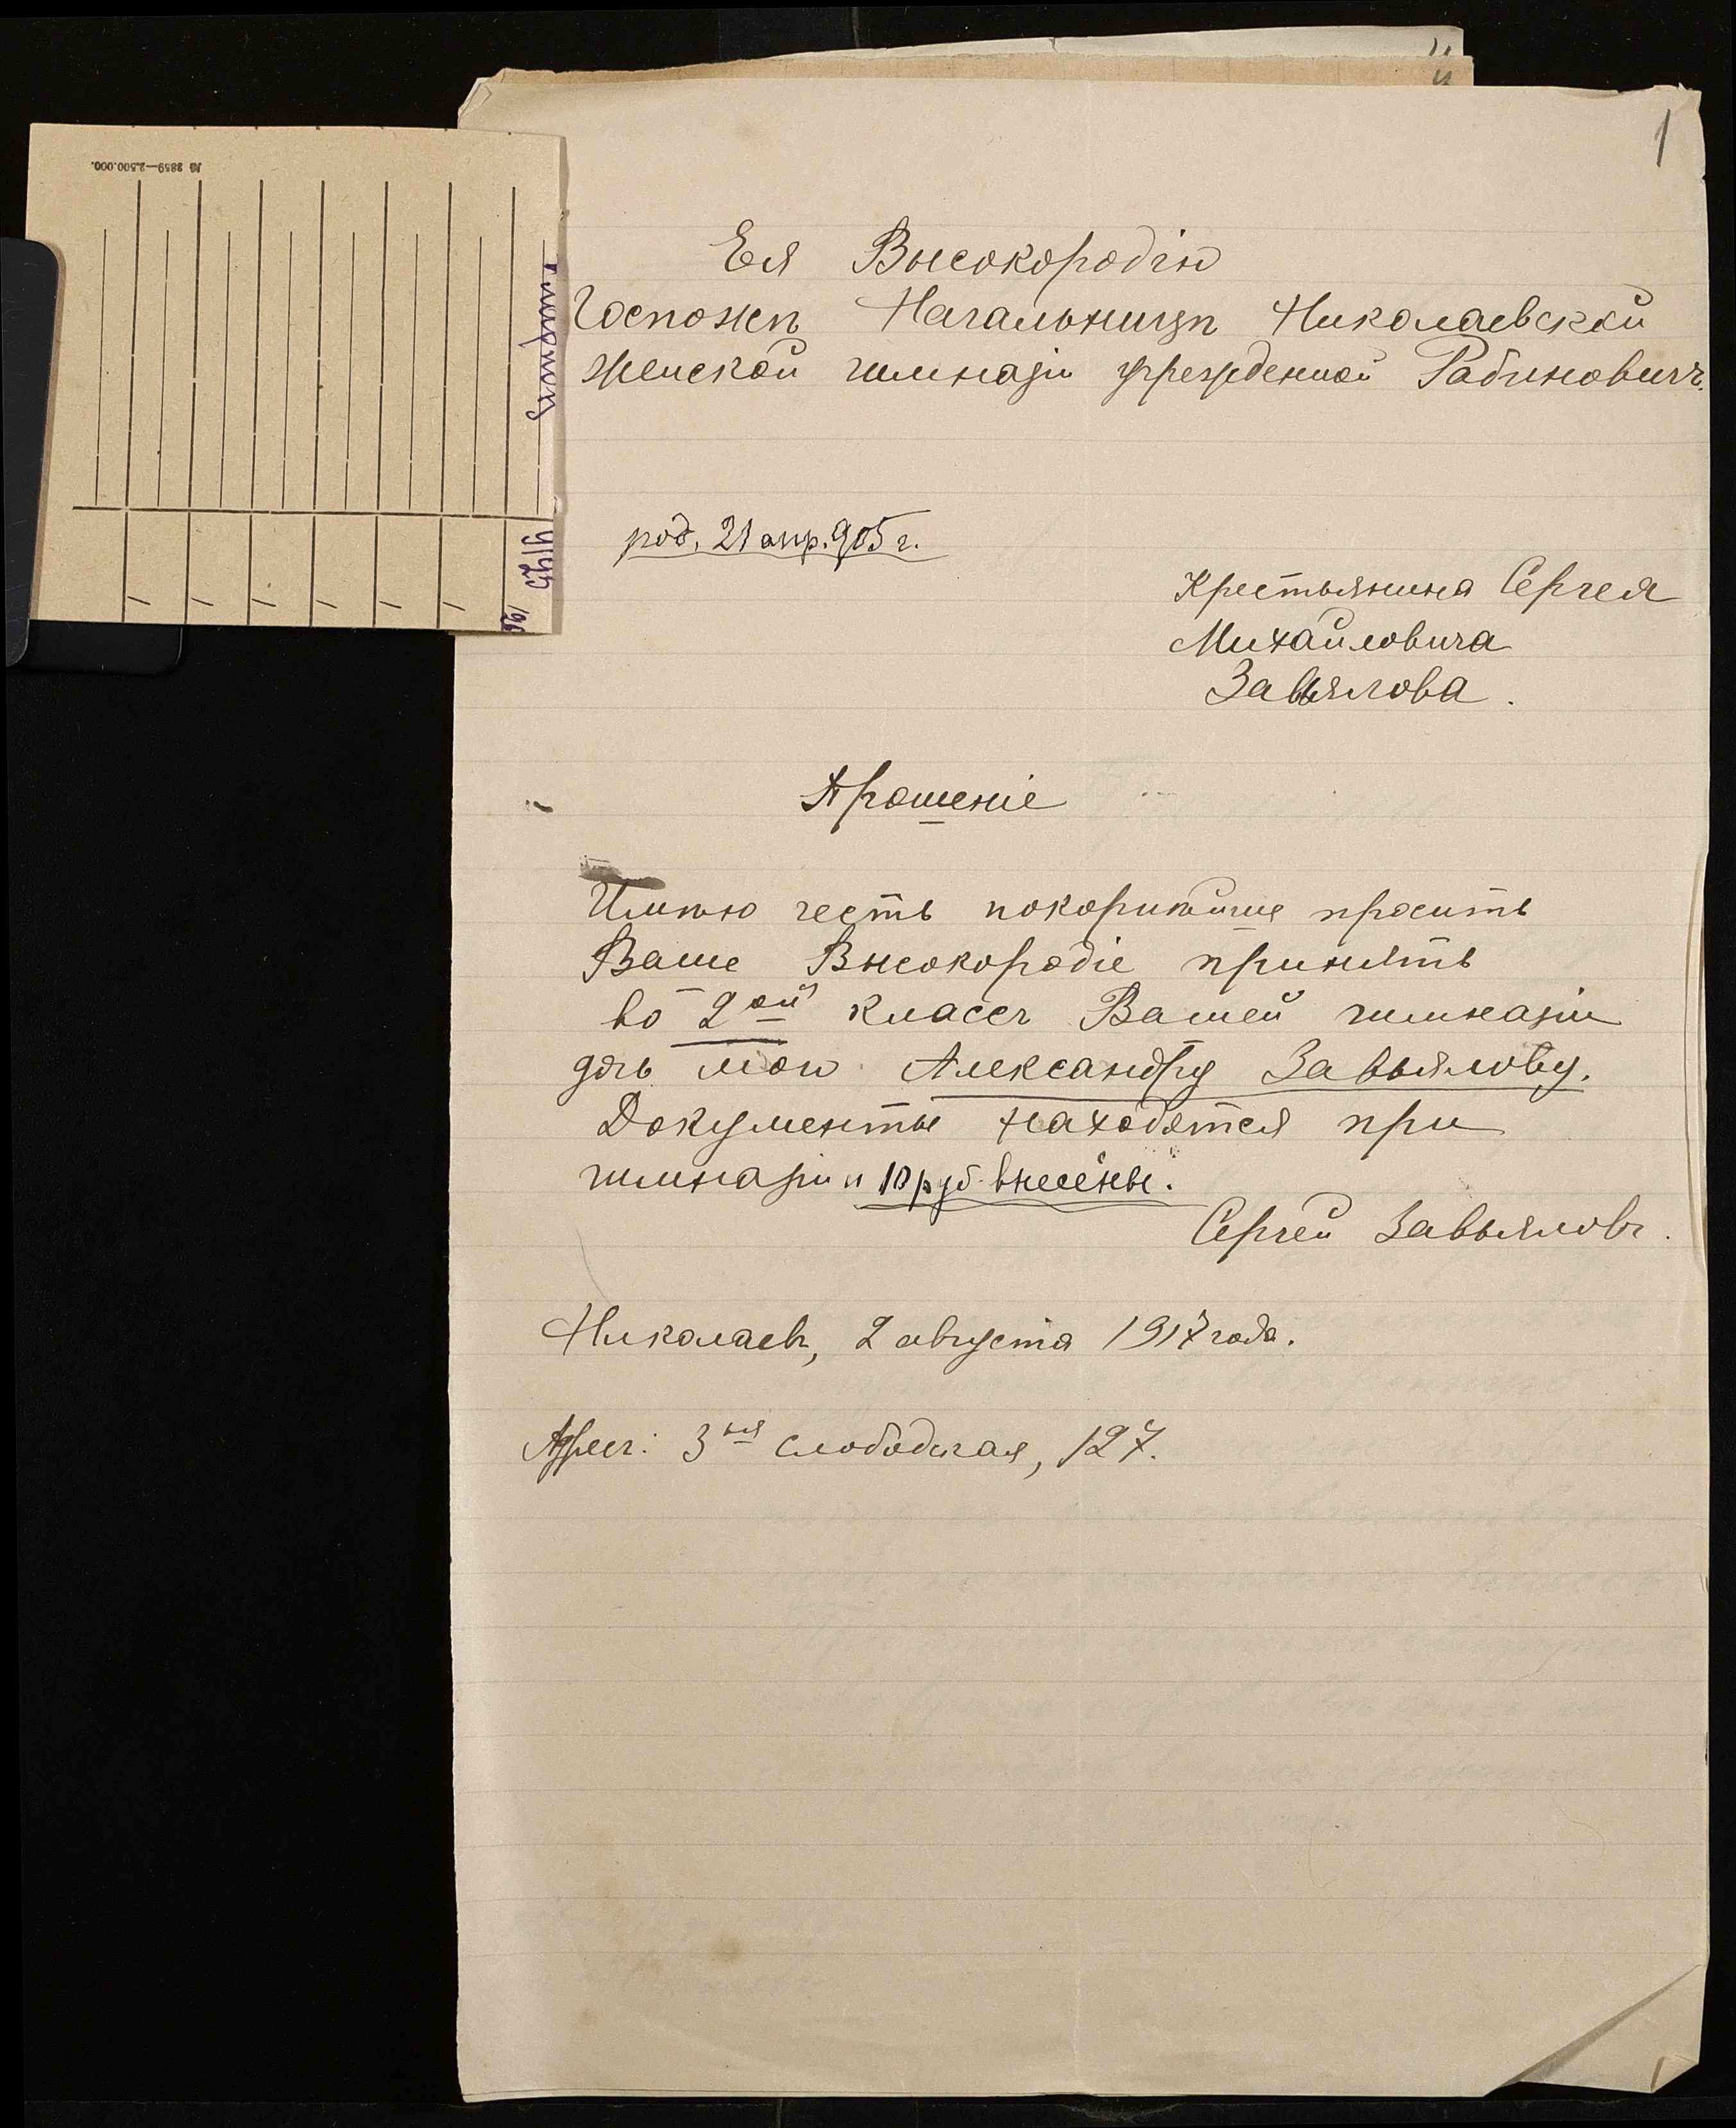 1
Ея Высокородію
Госпожѣ Начальницѣ Николаевской
женской гимназіи учрежденной Рабиновичъ.
род. 21 апр. 905 г.
Крестьянина Сергея
Михайловича
Завьялова.
Прошеніе
Имѣю честь покорнѣйше просить
Ваше Высокородіе принять
во 2ой классъ Вашей гимназіи
дочь мою Александру Завьялову.
Документы находятся при
гимназіи и 10 руб. внесены.
Сергей Завьяловъ.
Николаевъ, 2 августа 1917 года.
Адресъ: 3ья Слободская, 127.
№ 3859—2.500.000.